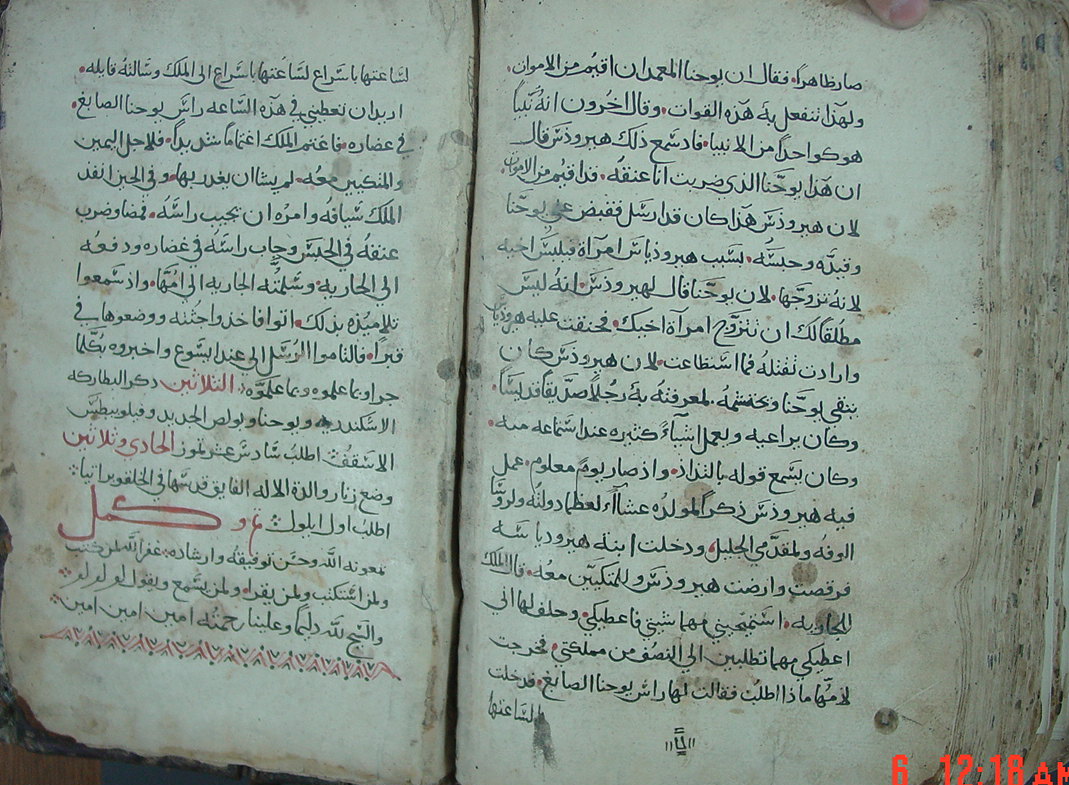 صار ظاهراً. فقال ان يوحنا المعمدان اقيم من الاموات.
ولهذا تنفعل به هذه القوات. وقال اخرون انه نبياً
هو كواحداً من الانبيا. فاذ سمع ذلك هيروذس قال
ان هذا يوحنا الذي ضربت انا عنقه. قد اقيم من الاموات.
لان هيروذس هذا كان قد ارسل فقبض على يوحنا
وقيده وحبسه. لسبب هيروذياس امراة فيلبس اخيه
لانه تزوجها. لان يوحنا قال لهيروذس. انه ليس
مطلقاً لك ان تتزوج امرآة اخيك. فحنقت عليه هيروذيا
وارادت تقتله فما استطاعت. لان هيروذس كان
يتقي يوحنا ويحتشمه. لمعرفته به رجلاً صديقاً قديساً.
وكان يراعيه ويعمل اشياءً كثيره عند استماعه منه.
وكان يسمع قوله بالتذاذ. واذ صار يوم معلوم. عمل
فيه هيروذس ذكر المولده عشاآء لعظما دولته ولروسا
الوفه ولمقدمي الجليل. ودخلت ابنة هيروديا سه
فرقصت وارضت هيروذس وللمتكيين معه. قال الملك
للجاريه. استميحيني مهما شيتي فاعطيكي. وحلف لها اني
اعطيكي مهما تطلبين الى النصف من مملكتي. فخرجت
لامها ماذا اطلب فقالت لها راس يوحنا الصابغ. فدخلت
لساعتها
لساعتها باسراع لساعتها باسراع الى الملك وسالته قايله.
اريد ان تعطيني في هذه الساعه راس يوحنا الصابغ
في غضاره. فاغتم الملك اغتماماً شديداً. فلاجل اليمين
والمتكيين معه. لم يشا ان يغدر بها. وفي الحين انفذ
الملك سيافه وامره ان تجيب راسه. فمضا وضرب
عنقه في الحبس وجاب راسه في غضاره ودفعه
الى الجاريه. وسلمته الجاريه الى امها. واذ سمعوا
تلاميذه بذلك. اتوا فاخذوا جثته ووضعوها في
قبراً. فالتاموا الرسل الى عند ايسوع واخبروه بكلما
جرا وبما علموه وبما عملوه. الثلاثين ذكر البطاركه
الاسكندريه ويوحنا وبولص الجديد وفيلوبيطس
الاسقف اطلب سادس عشر تموز الحادي وثلاثين
وضع زنار والدة الاله الفايق قدسها في الخلقوبراتيا
اطلب اول ايلول تم وكمل
بمعونه الله وحسن توفيقه وارشاده. غفر الله لمن كتب
ولمن استكتب ولمن يقرا. ولمن يسمع ويقول
والسبح لله دايما وعلينا رحمته امين امين امين